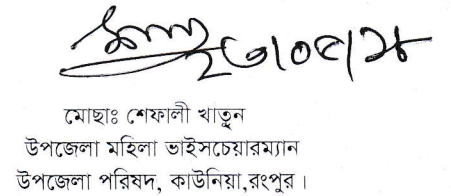 মোছাঃ শেফালী খাতুন
উপজেলা মহিলা ভাইসচেয়ারম্যান
উপজেলা পরিষদ, কাউনিয়া,রংপুর।